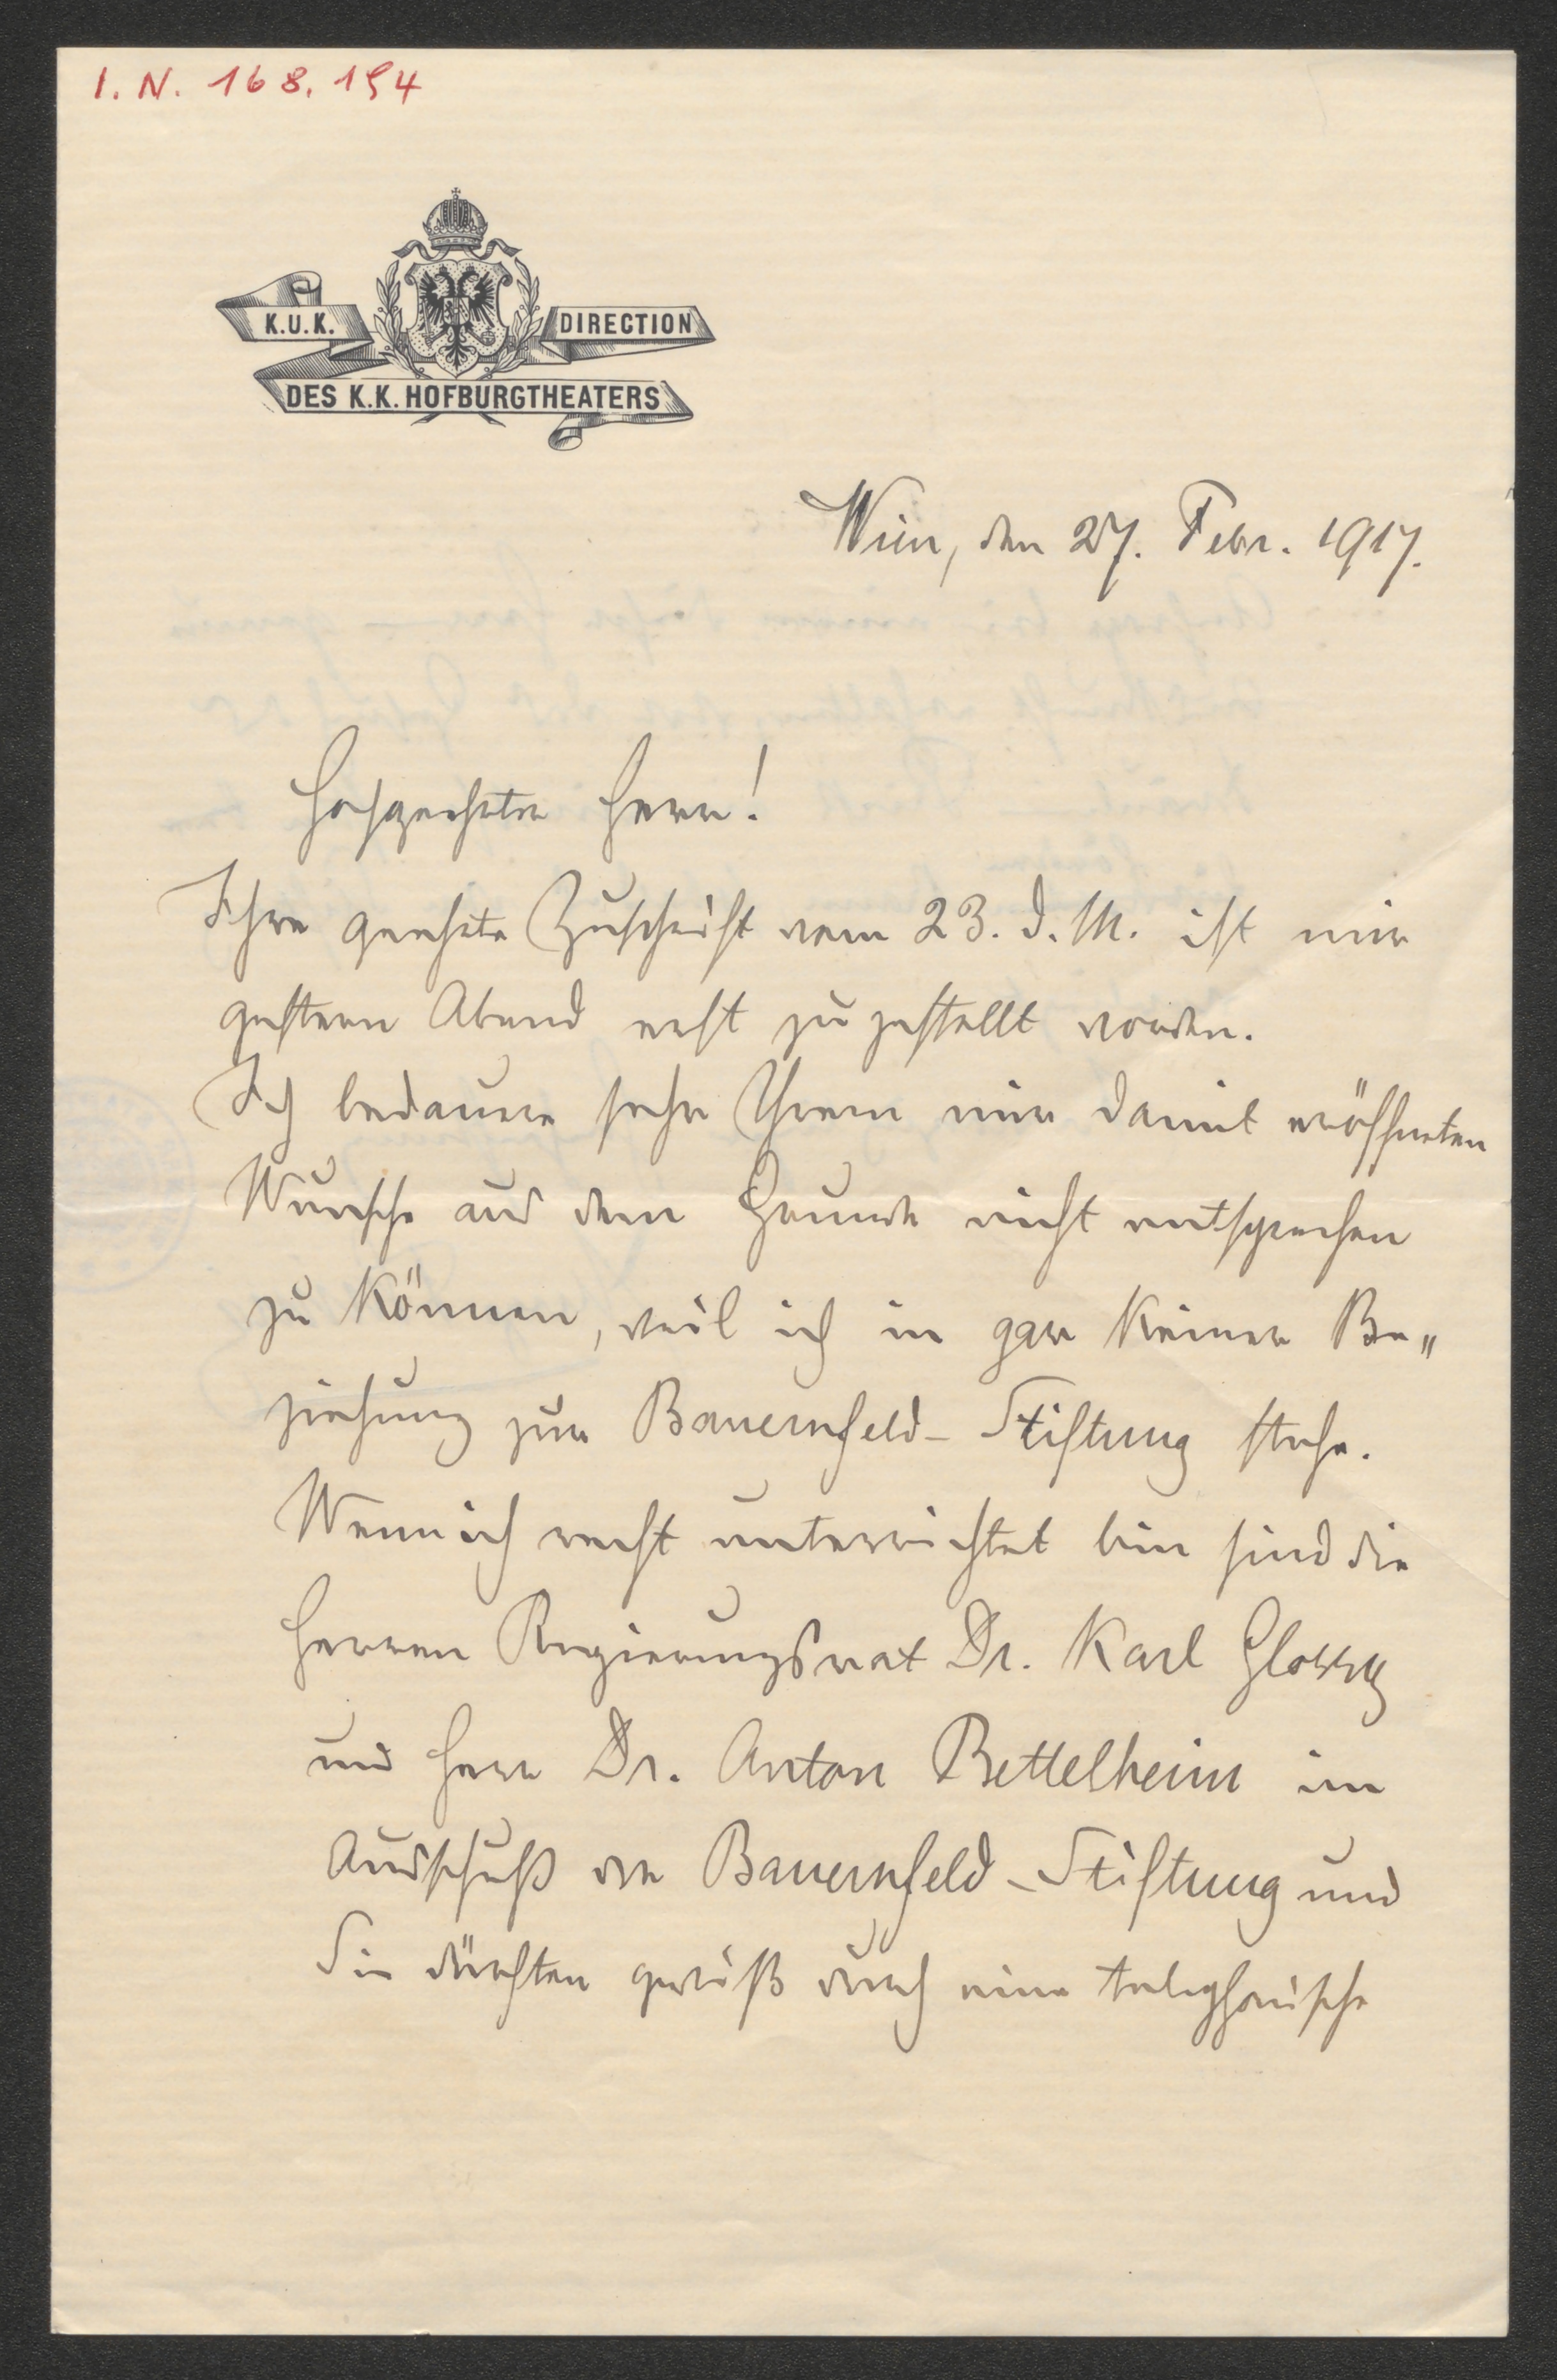 I. N. 168.154
K.U.K. DIRECTION
DES K.K. HOFBURGTHEATERS
Wien, den 27. Febr. 1917.
Hochgeehrter Herr!
Ihre geehrte Zuschrift vom 23. d. M. ist mir
gestern Abend erst zugestellt worden.
Ich bedauere sehr Ihrem mir damit eröffneten
Wunsche aus dem Grunde nicht entsprechen
zu können, weil ich in gar keiner Be„
ziehung zur Bauernfeld-Stiftung stehe.
Wenn ich recht unterrichtet bin sind die
Herren Regierungsrat Dr. Karl Glossy
und Herr Dr. Anton Bettelheim im
Ausschuß der Bauernfeld-Stiftung und
Sie dürften gewiß durch eine telephonische